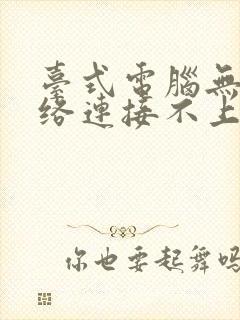 臺式電腦無
络連接不上
你也要起舞吗